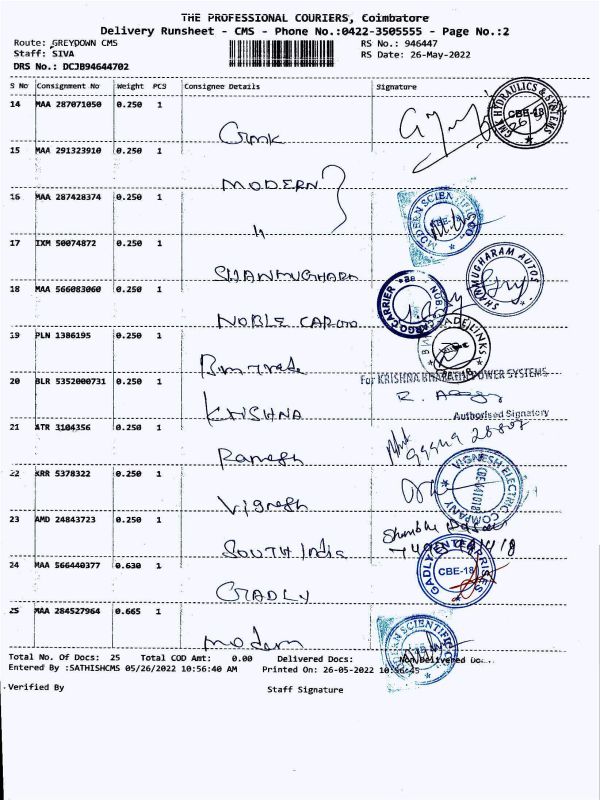 THE PROFESSIONAL COURIERS, Coimbatore
Delivery Runsheet - CMS - Phone No.:0422-3505555 - Page No.:2
Route: GREYDOWN CMS RS No.: 946447
Staff: SIVA RS Date: 26-May-2022
DRS No.: DCJB94644702
S No Consignment No Weight PCS Consignee Details Signature
14 MAA 287071050 0.250 1
CMK HYDRAULICS & SYSTEMS CBE-18
15 MAA 291323910 0.250 1
MODERN
16 MAA 287428374 0.250 1
MODERN SCIENTIFIC CO
17 IXM 50074872 0.250 1
SHANMUGHARAM AUTOS
18 MAA 566083060 0.250 1
NOBLE CARGO
NOBLE CARGO CARRIER
19 PLN 1386195 0.250 1
TRADE LINKS
20 BLR 5352000731 0.250 1
For KRISHNA BHARATH POWER SYSTEMS
KRISHNA
Authorised Signatory
21 ATR 3104356 0.250 1
Ramesh
22 KRR 5378322 0.250 1
Vignesh
VIGNESH ELECTRIC COMPANY
23 AMD 24843723 0.250 1
SOUTH India
24 MAA 566440377 0.630 1
GADLY
GADLY ENTERPRISES CBE-18
25 MAA 284527964 0.665 1
modern
MODERN SCIENTIFIC
Total No. Of Docs: 25 Total COD Amt: 0.00 Delivered Docs: Non Delivered Doc.
Entered By :SATHISHCMS 05/26/2022 10:56:40 AM Printed On: 26-05-2022 10:56:45
Verified By Staff Signature